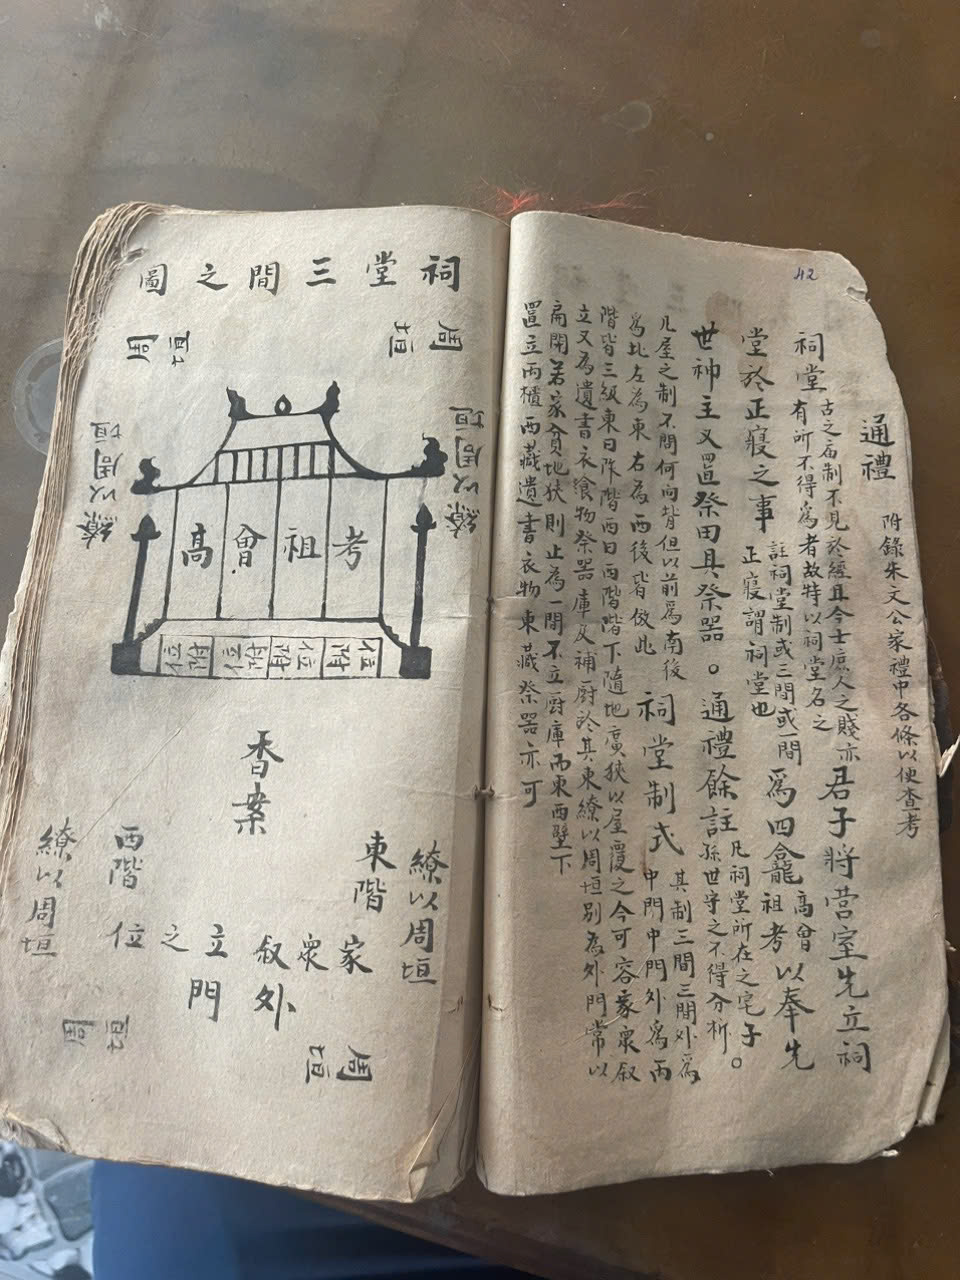 42
通禮 附錄朱文公家禮中各條以便查考
祠堂 古之庙制不見於經且今士庶人之賤亦有所不得爲者故特以祠堂名之 君子將营室先立祠
堂於正寢之事 註祠堂制或三間或一間正寢謂祠堂也 爲四龕 高曾祖考 以奉先
世神主又置祭田具祭器。通禮餘註 凡祠堂所在之宅子孫世守之不得分析。
凡屋之制不問何向背但以前爲南後爲北左為東右為西後皆倣此 祠堂制式 其制三間三間外爲中門中門外爲兩
階皆三級東曰阼階西曰西階階下隨地廣狹以屋覆之今可容家衆叙
立又為遺書衣飱物祭器庫及補厨於其東繚以周垣别為外門常以
扃閉若家貧地狹則止為一間不立厨庫而東西壁下
置立兩櫃西藏遺書衣物東藏祭器亦可
祠堂三間之圖
周垣
周垣
繚以周垣
繚以周垣
考祖曾高
附位
附位
附位
附位
香案
東階
西階
繚以周垣
繚以周垣
家衆叙立之位
外門
周垣
周垣